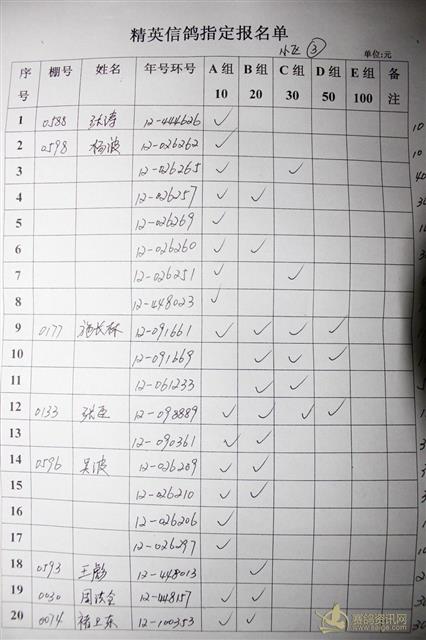 精英信鸽指定报名单
小飞 ③
单位:元
序号 棚号 姓名 年号环号 A组10 B组20 C组30 D组50 E组100 备注
1 0588 张涛 12-444626 ✓ 10
2 0598 杨波 12-026262 ✓ 10
3 12-026265 ✓ ✓ 40
4 12-026257 ✓ ✓
5 12-026269 ✓
6 12-026260 ✓ ✓
7 12-026251 ✓ ✓
8 12-448023 ✓
9 0177 12-091661 ✓ ✓ ✓ ✓
10 12-091669 ✓ ✓ ✓
11 12-061233 ✓ ✓
12 0133 12-098889 ✓ ✓ ✓ ✓
13 12-090361 ✓ ✓
14 0596 吴波 12-026209 ✓ ✓
15 12-026210 ✓ ✓
16 12-026206 ✓
17 12-026297 ✓
18 0593 12-448013 ✓
19 0030 12-448157 ✓ ✓
20 0074 12-100353 ✓ ✓
赛鸽资讯网
www.saige.com